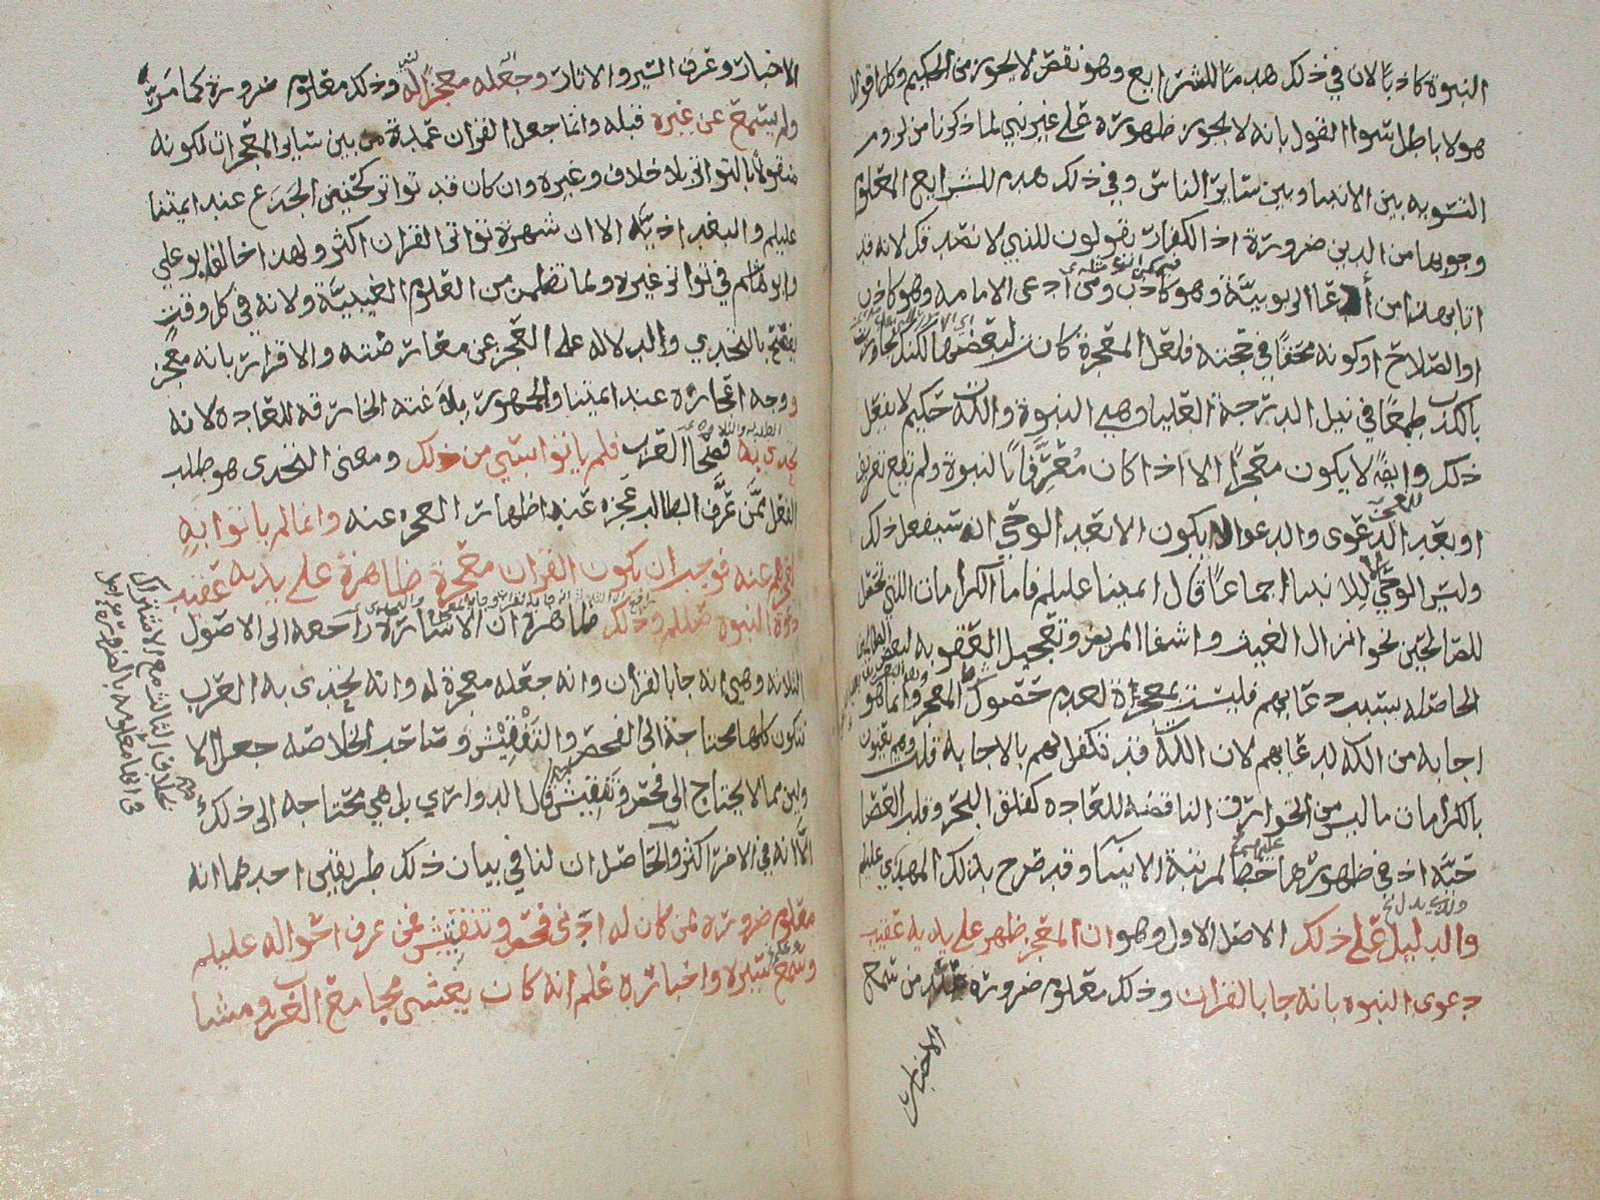 النبوة كاذبا لان في ذلك هدما للشرايع وهو نقص لا يجوز من الحكيم وكل اقوال
هولا باطل سوا القول بانه لا يجوز ظهوره على غير نبي لما ذكرنا من لزوم
التسويه بين الانبيا وبين ساير الناس وفي ذلك هدم للشرايع المعلوم
وجوبها من الدين ضرورة اذ الكفار يقولون للنبي لا نصدقك لانه قد
ادعا الربوبيّة وهو كاذب ومن ادعى الامامه وهو كاذب
او الصلاح او كونه محقا في حجته فلعل المعجزة كان لبعضها لكنك تجاوزت
بالكذب طمعًا في نيل الدرجة العليا وهي النبوة والله حكيم لا يفعل
ذلك وايضًا لا يكون معجزًا الا اذا كان معرفًا بالنبوة ولم تقع تعريف
او بعد الدعوى والدعوا لا يكون الا بعد الوحي انه سيفعل ذلك
وليس الوحي الا للانبيا اجماعًا قال ايمتنا عليلم فاما الكرامات التي تحصل
للصالحين نحو انزال الغيث واشفا المريض وتعجيل العقوبه لبعض الظالمين
الحاصله بسبب دعايهم فليست بمعجزاة لعدم حصول شرط المعجز وانما هو
اجابه من الله لدعايهم لان الله قد تكفل لهم بالاجابه
بالكرامات ما ليس من الخوارق الناقضه للعاده كفلق البحر وقلب العصا
حيّة اذ في ظهورها حط لمرتبة الانبيا وقد صرح بذلك المهدي عليلم
والدليل على ذلك الاصل الاول وهو ان المعجز ظهر على يديه عقيب
دعوى النبوه بانه جا بالقران وذلك معلوم ضروره عند من سمع
الاخبار
الاخبار وعرف السير والاثار وجعله معجزًا له وذلك معلوم ضرورة كما مرّ
ولم يسمع عن غيره قبله وانما جعل القران عمدة من بين ساير المعجزات لكونه
منقولًا بالتواتر بلا خلاف وغيره وان كان قد تواتر كحنين الجذع عند ايمتنا
عليلم والبغداذيّه الا ان شهرة تواتر القران اكثر ولهذا خالف ابو علي
وابو هاشم في تواتر غيره ولما تضمن من العلوم الغيبيّة ولانه في كل وقت
يفتح بالتحدي والدلاله على العجز عن معارضته والاقرار بانه معجز
ووجه اعجازه عند ايمتنا والجمهور بلاغته الخارقه للعاده لانه
تحدى به فصحا العرب فلم ياتوا بشي من ذلك ومعنى التحدى هو طلب
الفعل ممّن عرّف الطالب عجزه عنه اظهار العجزه عنه وانما لم ياتوا به
لعجزهم عنه فوجب ان يكون القران معجزة ظاهرة على يديه عقيب
دعوة النبوه صللم وذلك ظاهرة ان الاشارة راجعه الى الاصول
الثلاثه وهي انه جا بالقران وانه جعله معجزة له وانه تحدى به العرب
فتكون كلها محتاجة الى الفحص والتفتيش وصاحب الخلاصه جعل الا
ولين مما لا يحتاج الى فحص وتفتيش قال الدواري بل هي محتاجه الى ذلك
الّا انه في الاخر اكثر والحاصل ان لنا في بيان ذلك طريقين احدهما انه
معلوم ضروره لمن كان له ادنى فحص وتفتيش فمن عرف احواله عليلم
وسمع سيره واخباره علم انه كان يغشى مجامع العرب ومشا
بخلاف الثالث مع الاشتراك
في انها معلومه بالضرورة